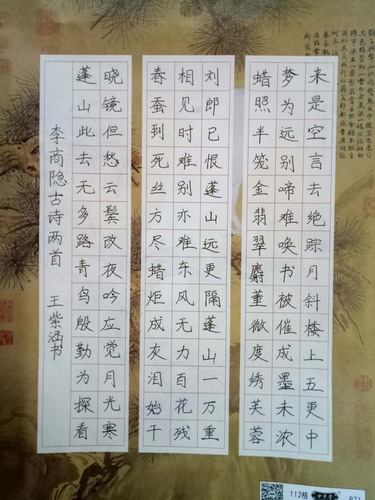 来是空言去绝踪月斜楼上五更中
梦为远别啼难唤书被催成墨未浓
蜡照半笼金翡翠麝薰微度绣芙蓉
刘郎已恨蓬山远更隔蓬山一万重
相见时难别亦难东风无力百花残
春蚕到死丝方尽蜡炬成灰泪始干
晓镜但愁云鬓改夜吟应觉月光寒
蓬山此去无多路青鸟殷勤为探看
李商隐古诗两首 王紫涵书
112格